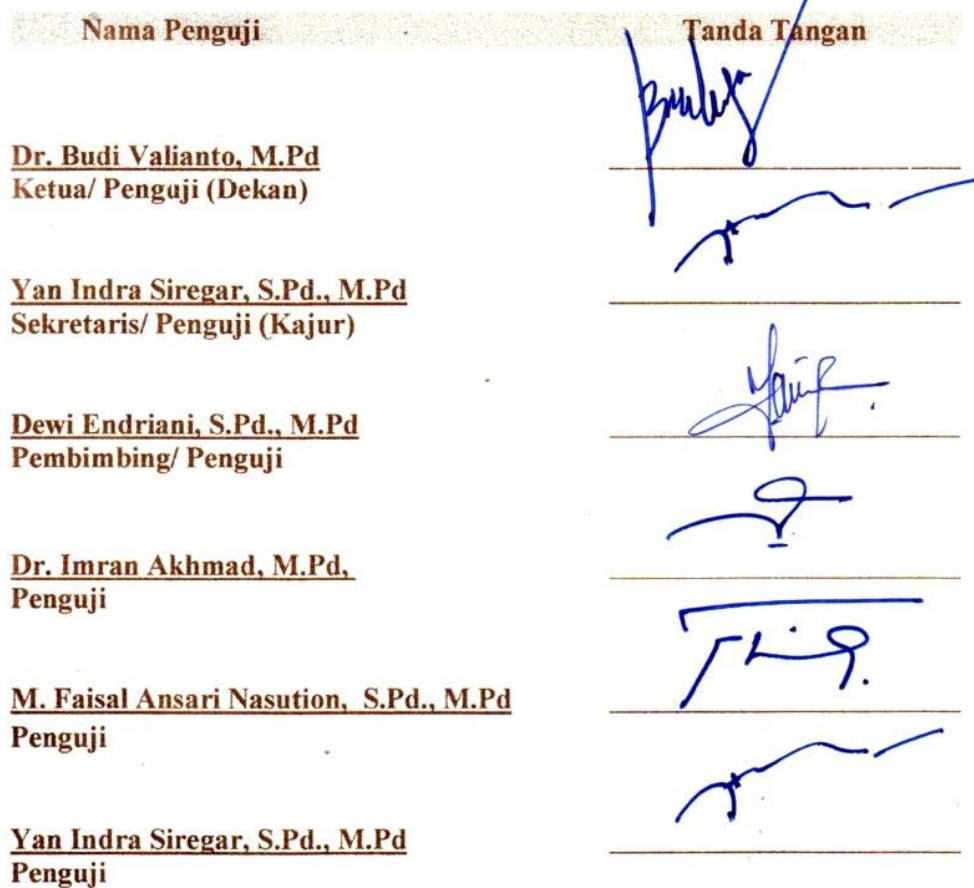 Nama Penguji Tanda Tangan
Dr. Budi Valianto, M.Pd
Ketua/ Penguji (Dekan)
Yan Indra Siregar, S.Pd., M.Pd
Sekretaris/ Penguji (Kajur)
Dewi Endriani, S.Pd., M.Pd
Pembimbing/ Penguji
Dr. Imran Akhmad, M.Pd,
Penguji
M. Faisal Ansari Nasution, S.Pd., M.Pd
Penguji
Yan Indra Siregar, S.Pd., M.Pd
Penguji